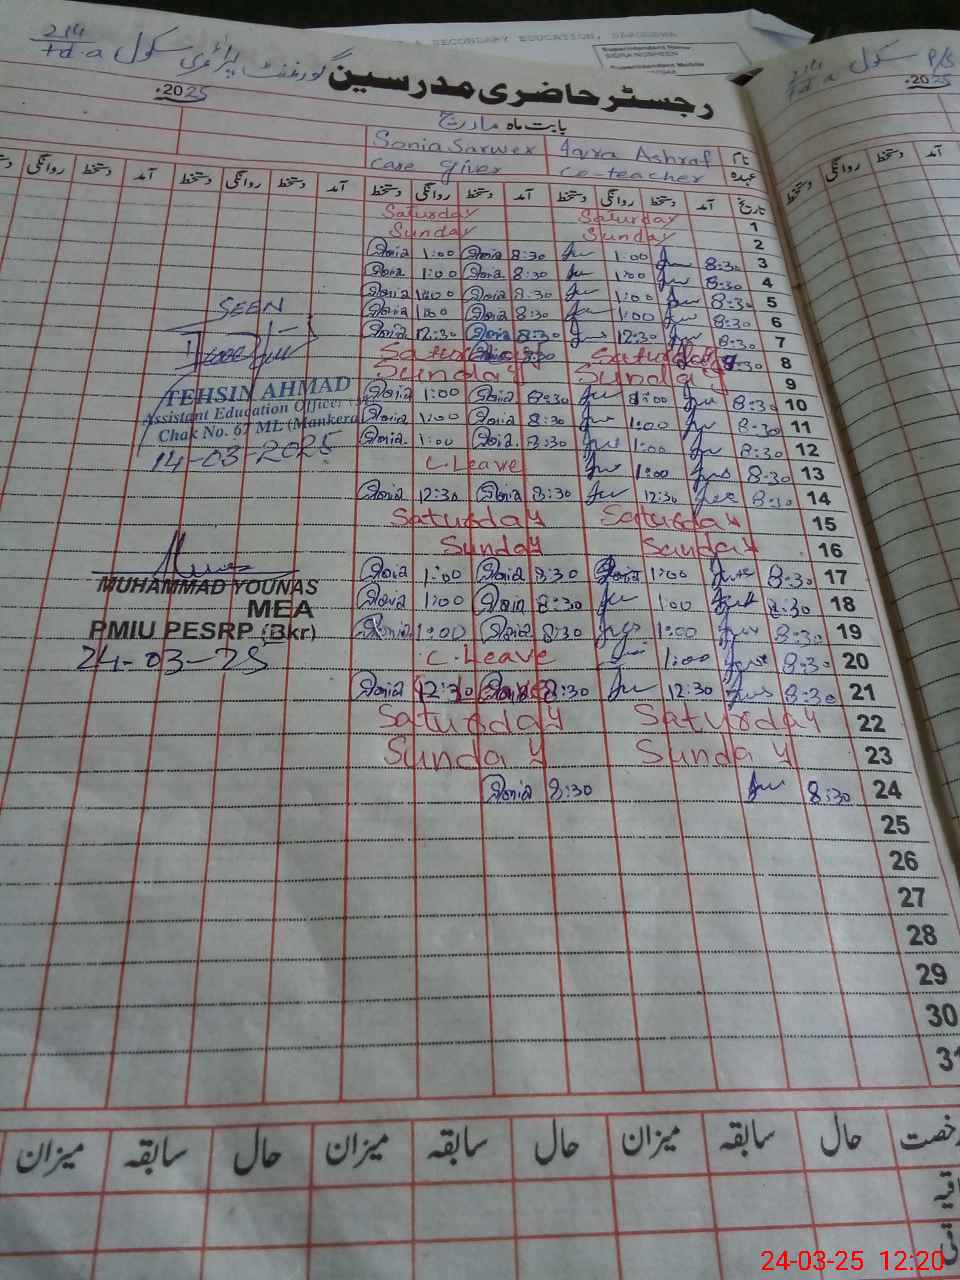 SECONDARY EDUCATION, SARGODHA
Superintendent Name
SIDRA NOSHEEN
Superintendent Mobile
گورنمنٹ پرائمری سکول 214 td.a
رجسٹر حاضری مدرسین
2025
بابت ماہ مارچ
نام Iqra Ashraf Sonia Sarwer
عہدہ co-teacher care giver
تاریخ آمد دستخط روانگی دستخط آمد دستخط روانگی دستخط آمد دستخط روانگی دستخط آمد دستخط روانگی
1 Saturday Saturday
2 Sunday Sunday
3 8:30 1:00 8:30 Sonia 1:00 Sonia
4 8:30 1:00 8:30 Sonia 1:00 Sonia
5 8:30 1:00 8:30 Sonia 1:00 Sonia
6 8:30 1:00 8:30 Sonia 1:00 Sonia
7 8:30 12:30 8:30 Sonia 12:30 Sonia
8 8:30 Saturday 8:30 Saturday
9 Sunday Sunday
10 8:30 1:00 8:30 Sonia 1:00 Sonia
11 8:30 1:00 8:30 Sonia 1:00 Sonia
12 8:30 1:00 8:30 Sonia 1:00 Sonia
13 8:30 1:00 C.Leave
14 8:30 12:30 8:30 Sonia 12:30 Sonia
15 Saturday Saturday
16 Sunday Sunday
17 8:30 1:00 8:30 Sonia 1:00 Sonia
18 8:30 1:00 8:30 Sonia 1:00 Sonia
19 8:30 1:00 8:30 Sonia 1:00 Sonia
20 8:30 1:00 C.Leave
21 8:30 12:30 8:30 Sonia 12:30 Sonia
22 Saturday Saturday
23 Sunday Sunday
24 8:30 8:30 Sonia
25
26
27
28
29
30
31
SEEN
TEHSIN AHMAD
Assistant Education Officer
Chak No. 67 ML (Mankera)
14-03-2025
MUHAMMAD YOUNAS
MEA
PMIU PESRP (Bkr)
24-03-25
رخصت حال سابقہ میزان حال سابقہ میزان حال سابقہ میزان
سکول P/S
214 td.a
2025
آمد دستخط روانگی دستخط
24-03-25 12:20